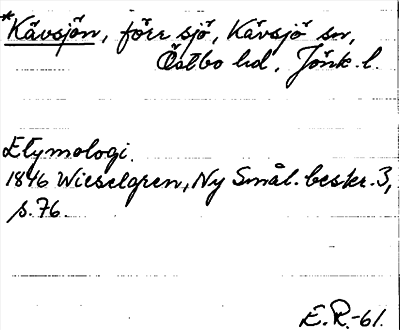 *Kävsjön, förr sjö, Kävsjö sn,
Östbo hd, Jönk. l.
Etymologi.
1846 Wieselgren, Ny Smål. beskr. 3,
s. 76.
E. R.-61.